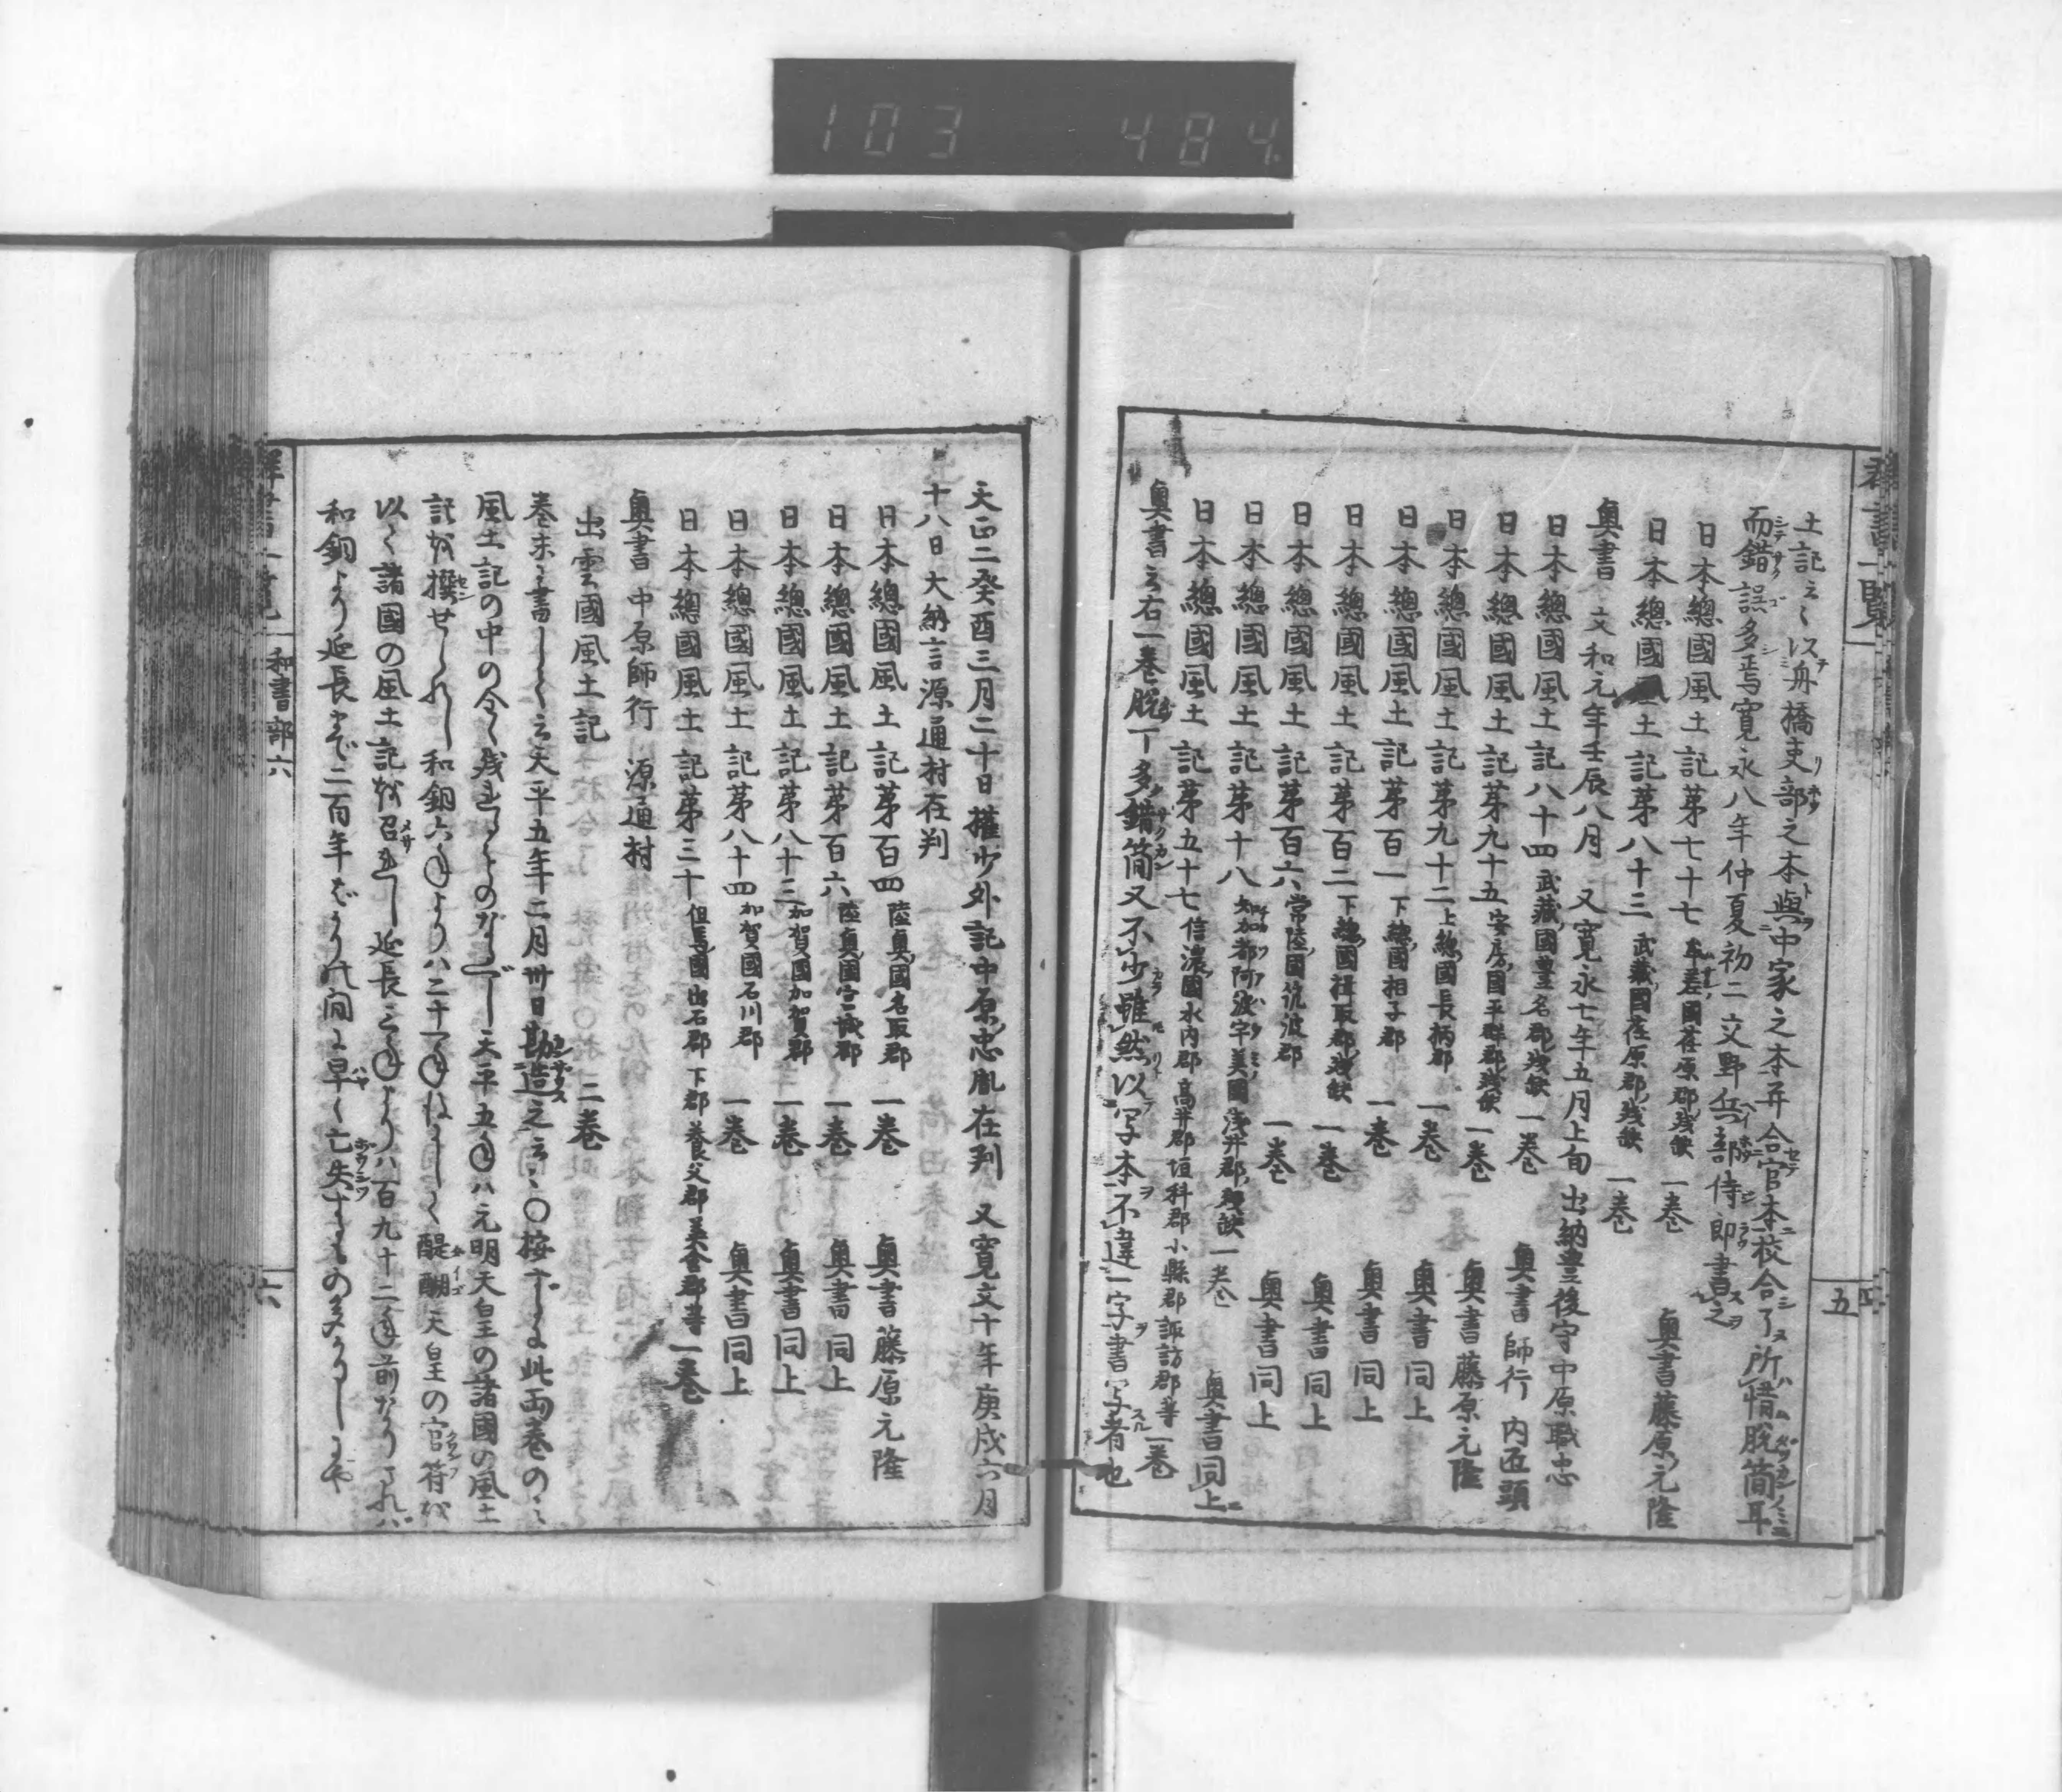 103 484
群書一覧
五
土記云々以舟橋吏部之本與中家之本弁合官本校合了所惜脱簡耳
而錯誤多焉寛永八年仲夏初二交野兵部侍郎書之
日本總國風土記苐七十七 國荏原郡残缺 一巻
日本總國風土記苐八十三 武藏國荏原郡残缺 一巻 奥書藤原元隆
奥書 文和元年壬辰八月 又寛永七年五月上旬 出納豊後守中原職忠
日本總國風土記八十四 武藏國豊名郡残缺 一巻 奥書 師行 内匠頭
日本總國風土記苐九十五 安房國平群郡残缺 一巻 奥書藤原元隆
日本總國風土記苐九十二 上總國長柄郡 一巻 奥書同上
日本總國風土記苐百一 下總國相子郡 一巻 奥書同上
日本總國風土記苐百二 下總國 郡残缺 一巻 奥書同上
日本總國風土記苐百六 常陸國筑波郡 一巻 奥書同上
日本總國風土記苐十八 知加都阿波宇美國 浅井郡残缺 一巻 奥書同上
日本總國風土記苐五十七 信濃國水内郡 高井郡垣科郡小縣郡諏訪郡等 一巻
奥書云右一巻脱丁多錯簡又不少雖然以写本不違一字書写者也
天正二癸酉三月二十日權少外記中原忠胤在判 又寛文十年庚戌六月
十八日大納言源通村在判
日本總國風土記苐百四 陸奥國名取郡 一巻 奥書藤原元隆
日本總國風土記苐百六 陸奥國宮城郡 一巻 奥書同上
日本總國風土記苐八十三 加賀國加賀郡 一巻 奥書同上
日本總國風土記苐八十四 加賀國石川郡 一巻 奥書同上
日本總國風土記苐三十 但馬國出石郡 下郡養父郡美含郡等 一巻
奥書 中原師行 源通村
出雲國風土記 二巻
巻末に書しく云天平五年二月卅日勘造之云々〇按ずるに此両巻の
風土記の中の全く残 るものなるべし天平五年ハ元明天皇の諸國の風土
記を撰せられし和銅六年よりハ二十一年 く醍醐天皇の官符を
以く諸國の風土記を召 し延長三年よりハ百九十二年前なりされバ
和銅より延長まで二百年ばかりの間に早く亡失するもの多かりしにや
群書一覧
和書部六
六